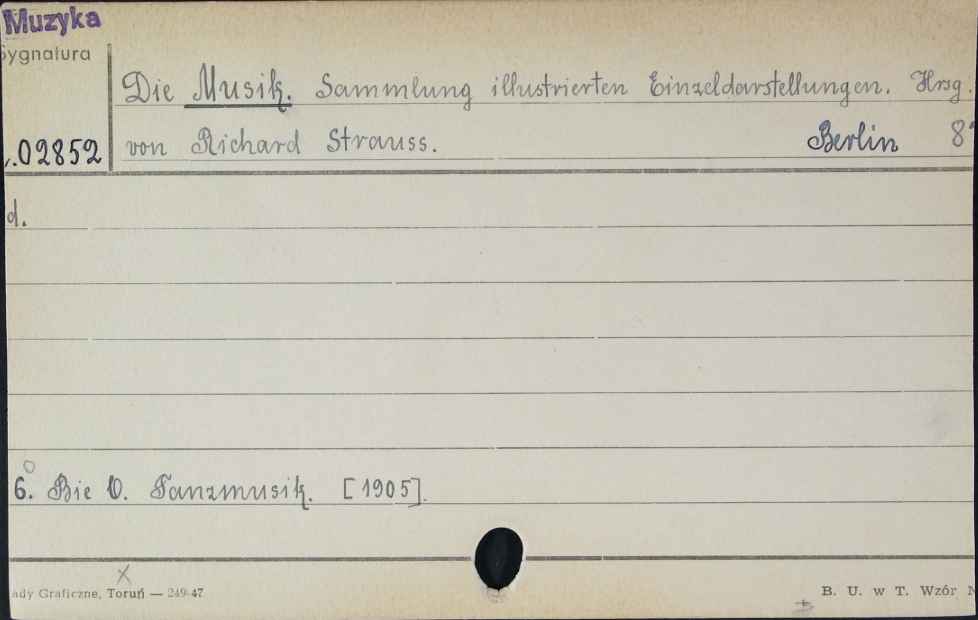 Muzyka
Sygnatura
Die Musik. Sammlung illustrierten Einzeldarstellungen. Hrsg.
.02852 von Richard Strauss. Berlin 8°
d.
6. Bie O. Tanzmusik. [1905].
ady Graficzne, Toruń — 249-47
B. U. w T. Wzór N